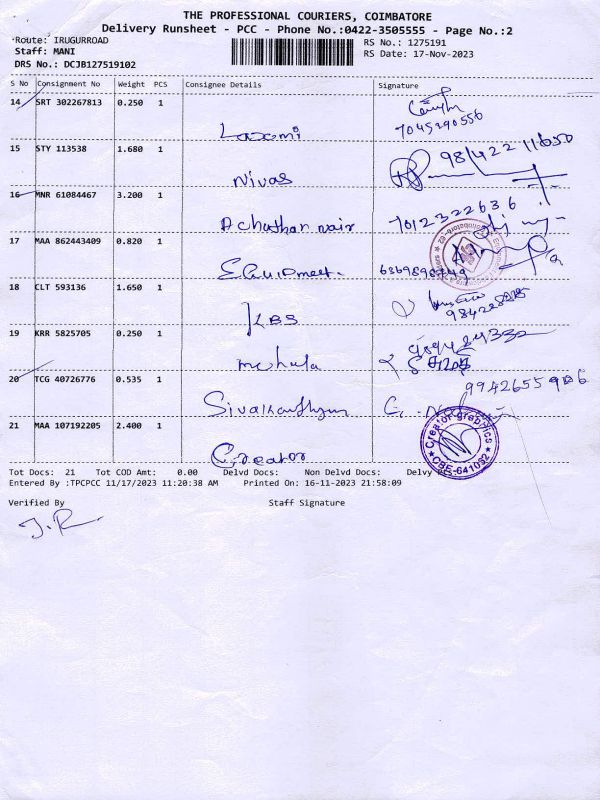 THE PROFESSIONAL COURIERS, COIMBATORE
Delivery Runsheet - PCC - Phone No.:0422-3505555 - Page No.:2
Route: IRUGURROAD
RS No.: 1275191
Staff: MANI
RS Date: 17-Nov-2023
DRS No.: DCJB127519102
S No Consignment No Weight PCS Consignee Details Signature
14 SRT 302267813 0.250 1
Laxmi 7045290556
15 STY 113538 1.680 1
Nivas
16 MNR 61084467 3.200 1
Achuthan nair 7012322636
17 MAA 862443409 0.820 1
EQuipmeet.
18 CLT 593136 1.650 1
KBS
19 KRR 5825705 0.250 1
Mehala
20 TCG 40726776 0.535 1
9942655906
21 MAA 107192205 2.400 1
Creator
Creator graphics
CBE-641092
Tot Docs: 21 Tot COD Amt: 0.00 Delvd Docs: Non Delvd Docs: Delvy
Entered By :TPCPCC 11/17/2023 11:20:38 AM Printed On: 16-11-2023 21:58:09
Verified By Staff Signature